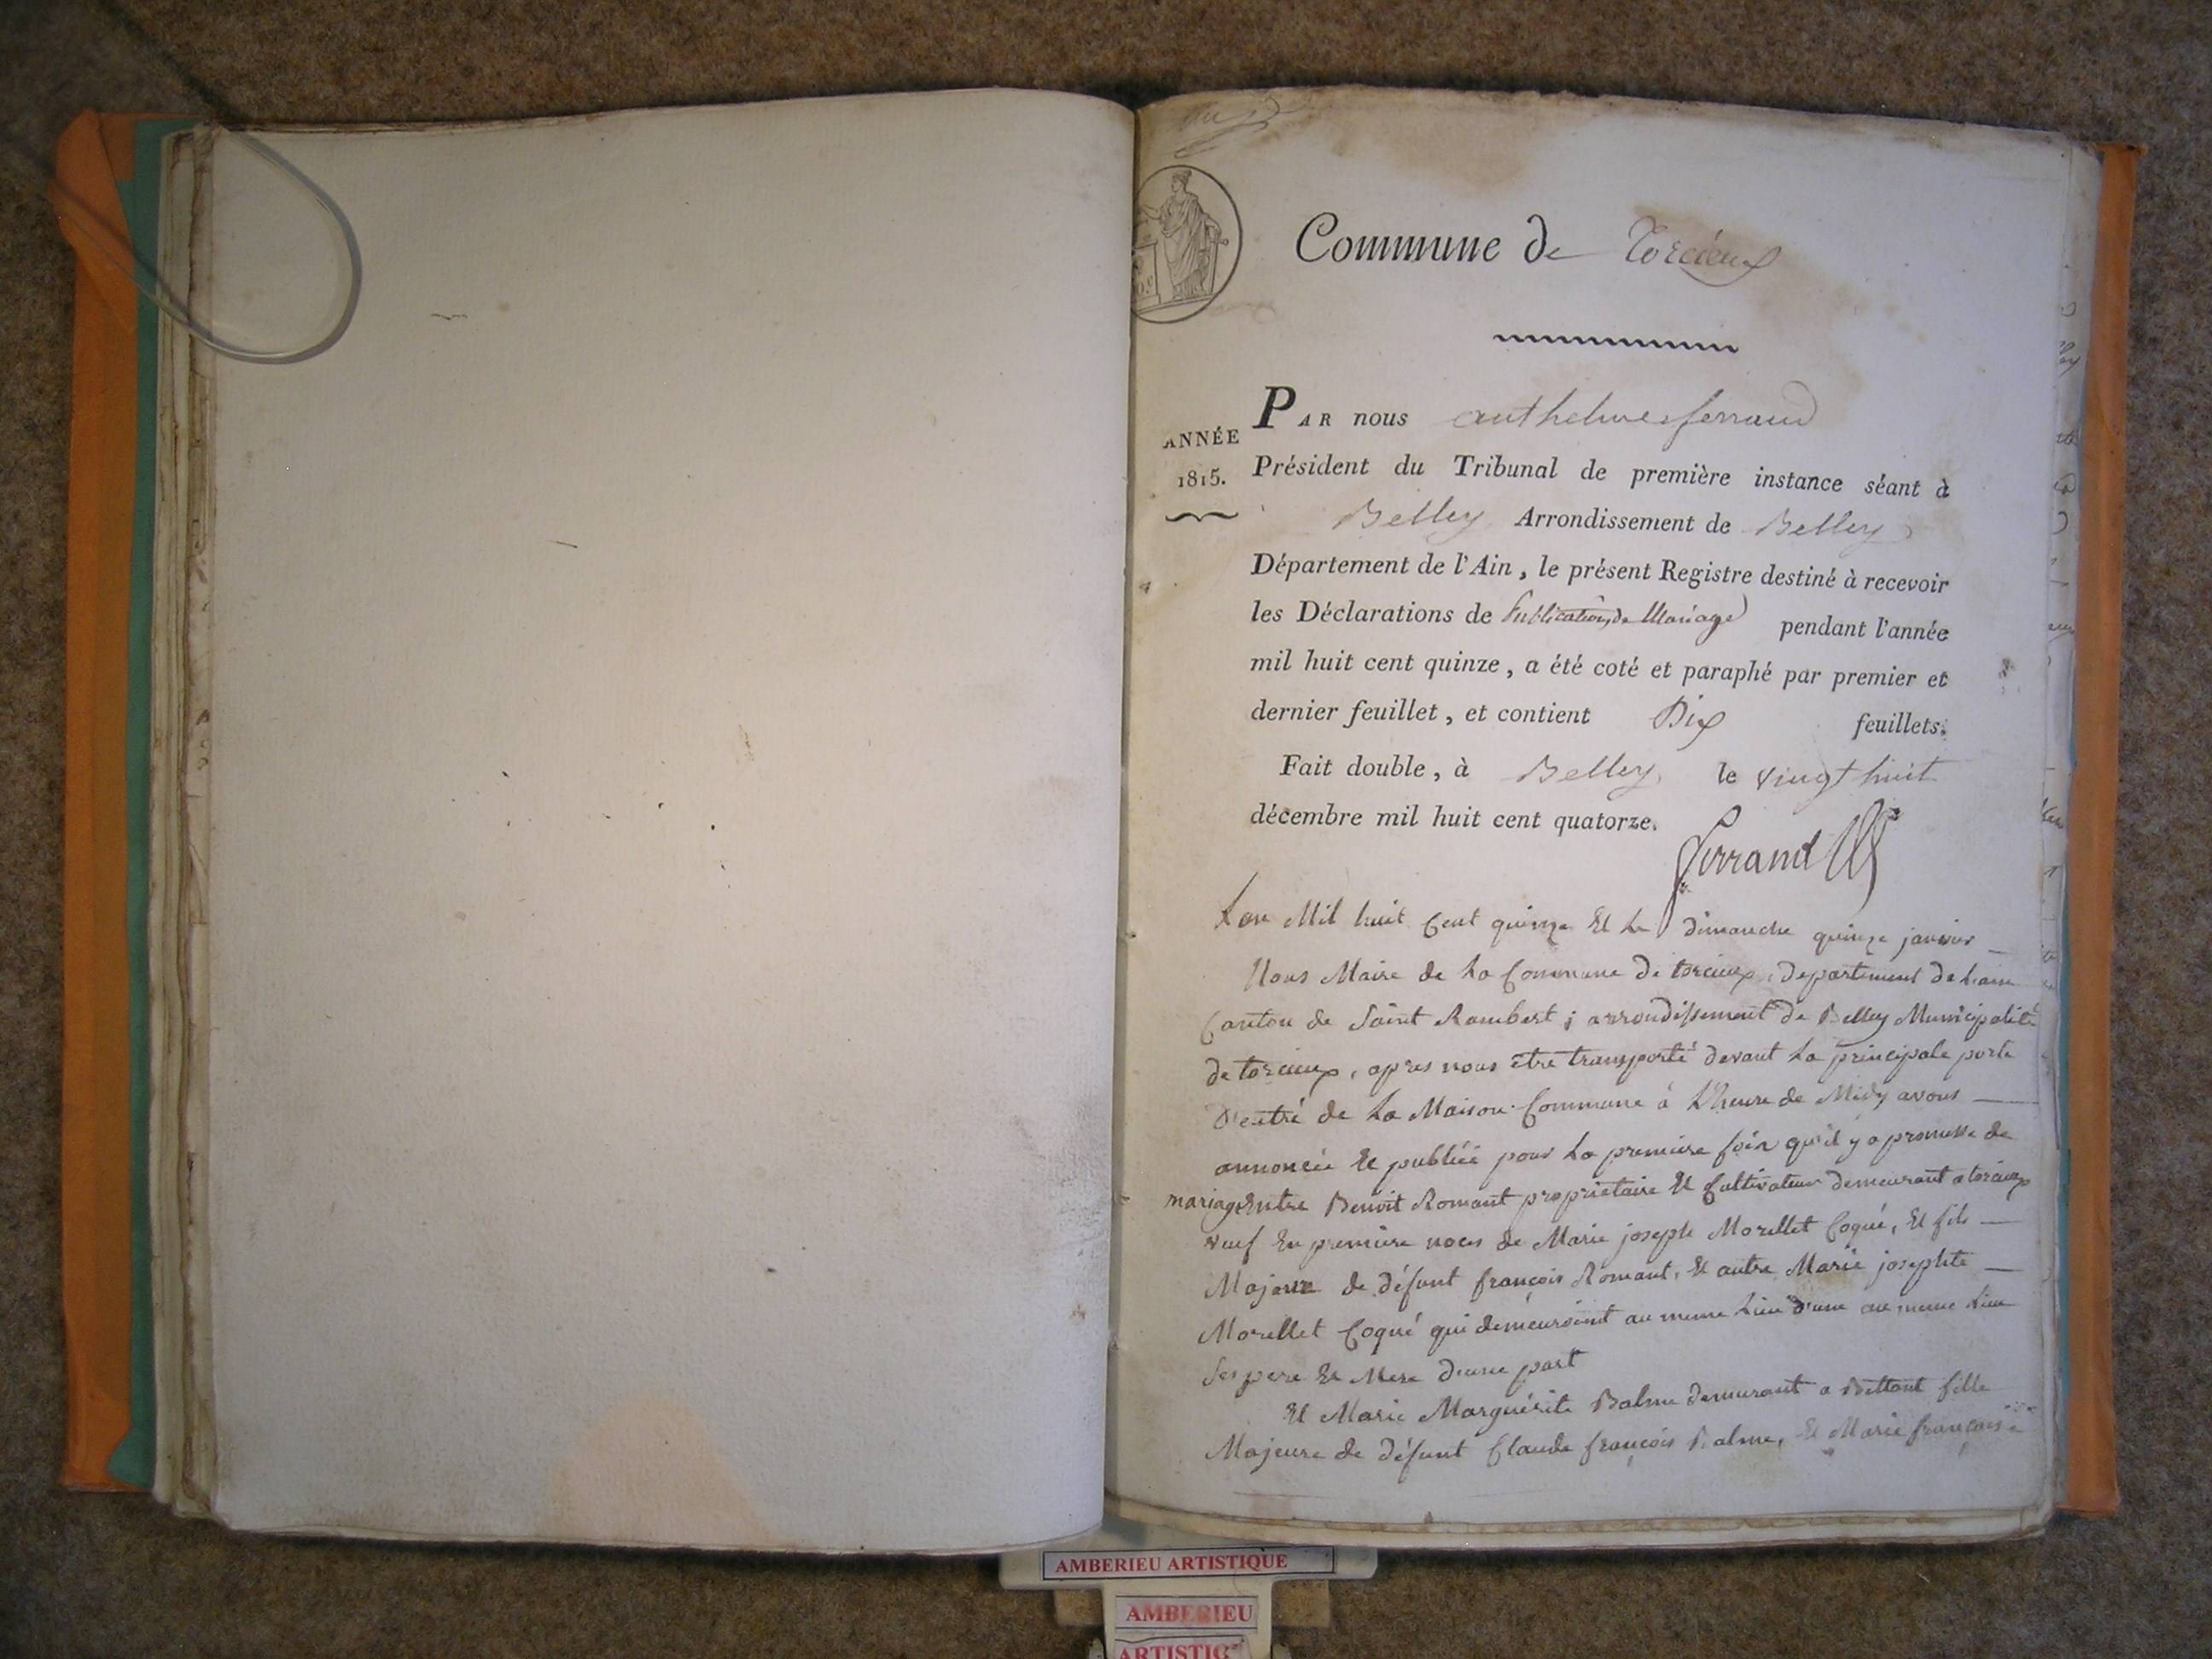 Commune de Torcieux
ANNÉE
1815.
PAR nous anthelme ferrand
Président du Tribunal de première instance séant à
Belley Arrondissement de Belley
Département de l'Ain, le présent Registre destiné à recevoir
les Déclarations de Publication de Mariage pendant l'année
mil huit cent quinze, a été coté et paraphé par premier et
dernier feuillet, et contient Dix feuillets.
Fait double, à Belley le vingt huit
décembre mil huit cent quatorze.
ferrand
Lan Mil huit Cent quinze Et Le dimanche quinze janvier
Nous Maire de La Commune de torcieux, departement de Lain
Canton de Saint Rambert ; arrondissement de Belley Municipalité
de torcieux, apres nous être transporté devant La principale porte
d'entré de La Maison Commune à L'heure de Midy avons
annoncée Et publiée pour La premiere fois qu'il y a promesse de
mariage Entre Benoit Romant proprietaire Et Cultivateur demeurant a torcieux
veuf En premiere noces de Marie joseph Morellet Coqué, Et fils
Majeur de défunt françois Romant, Et autre Marie josephte
Morellet Coqué qui demeuroient au meme Lieu d'une au meme Lieu
Ses pere Et Mere d'une part
Et Marie Marguérite Balme demeurant a Bettant fille
Majeure de défunt Claude françois Balme, Et Marie françoise
AMBERIEU ARTISTIQUE
AMBERIEU
ARTISTIQ